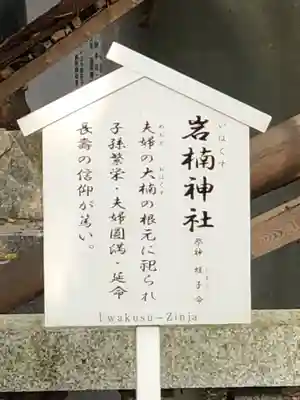 いはくす
岩楠神社
祭神 蛭子命
夫婦の大楠の根元に祀られ
子孫繁栄・夫婦圓満・延命
長壽の信仰が篤い。
Iwakusu-Zinja